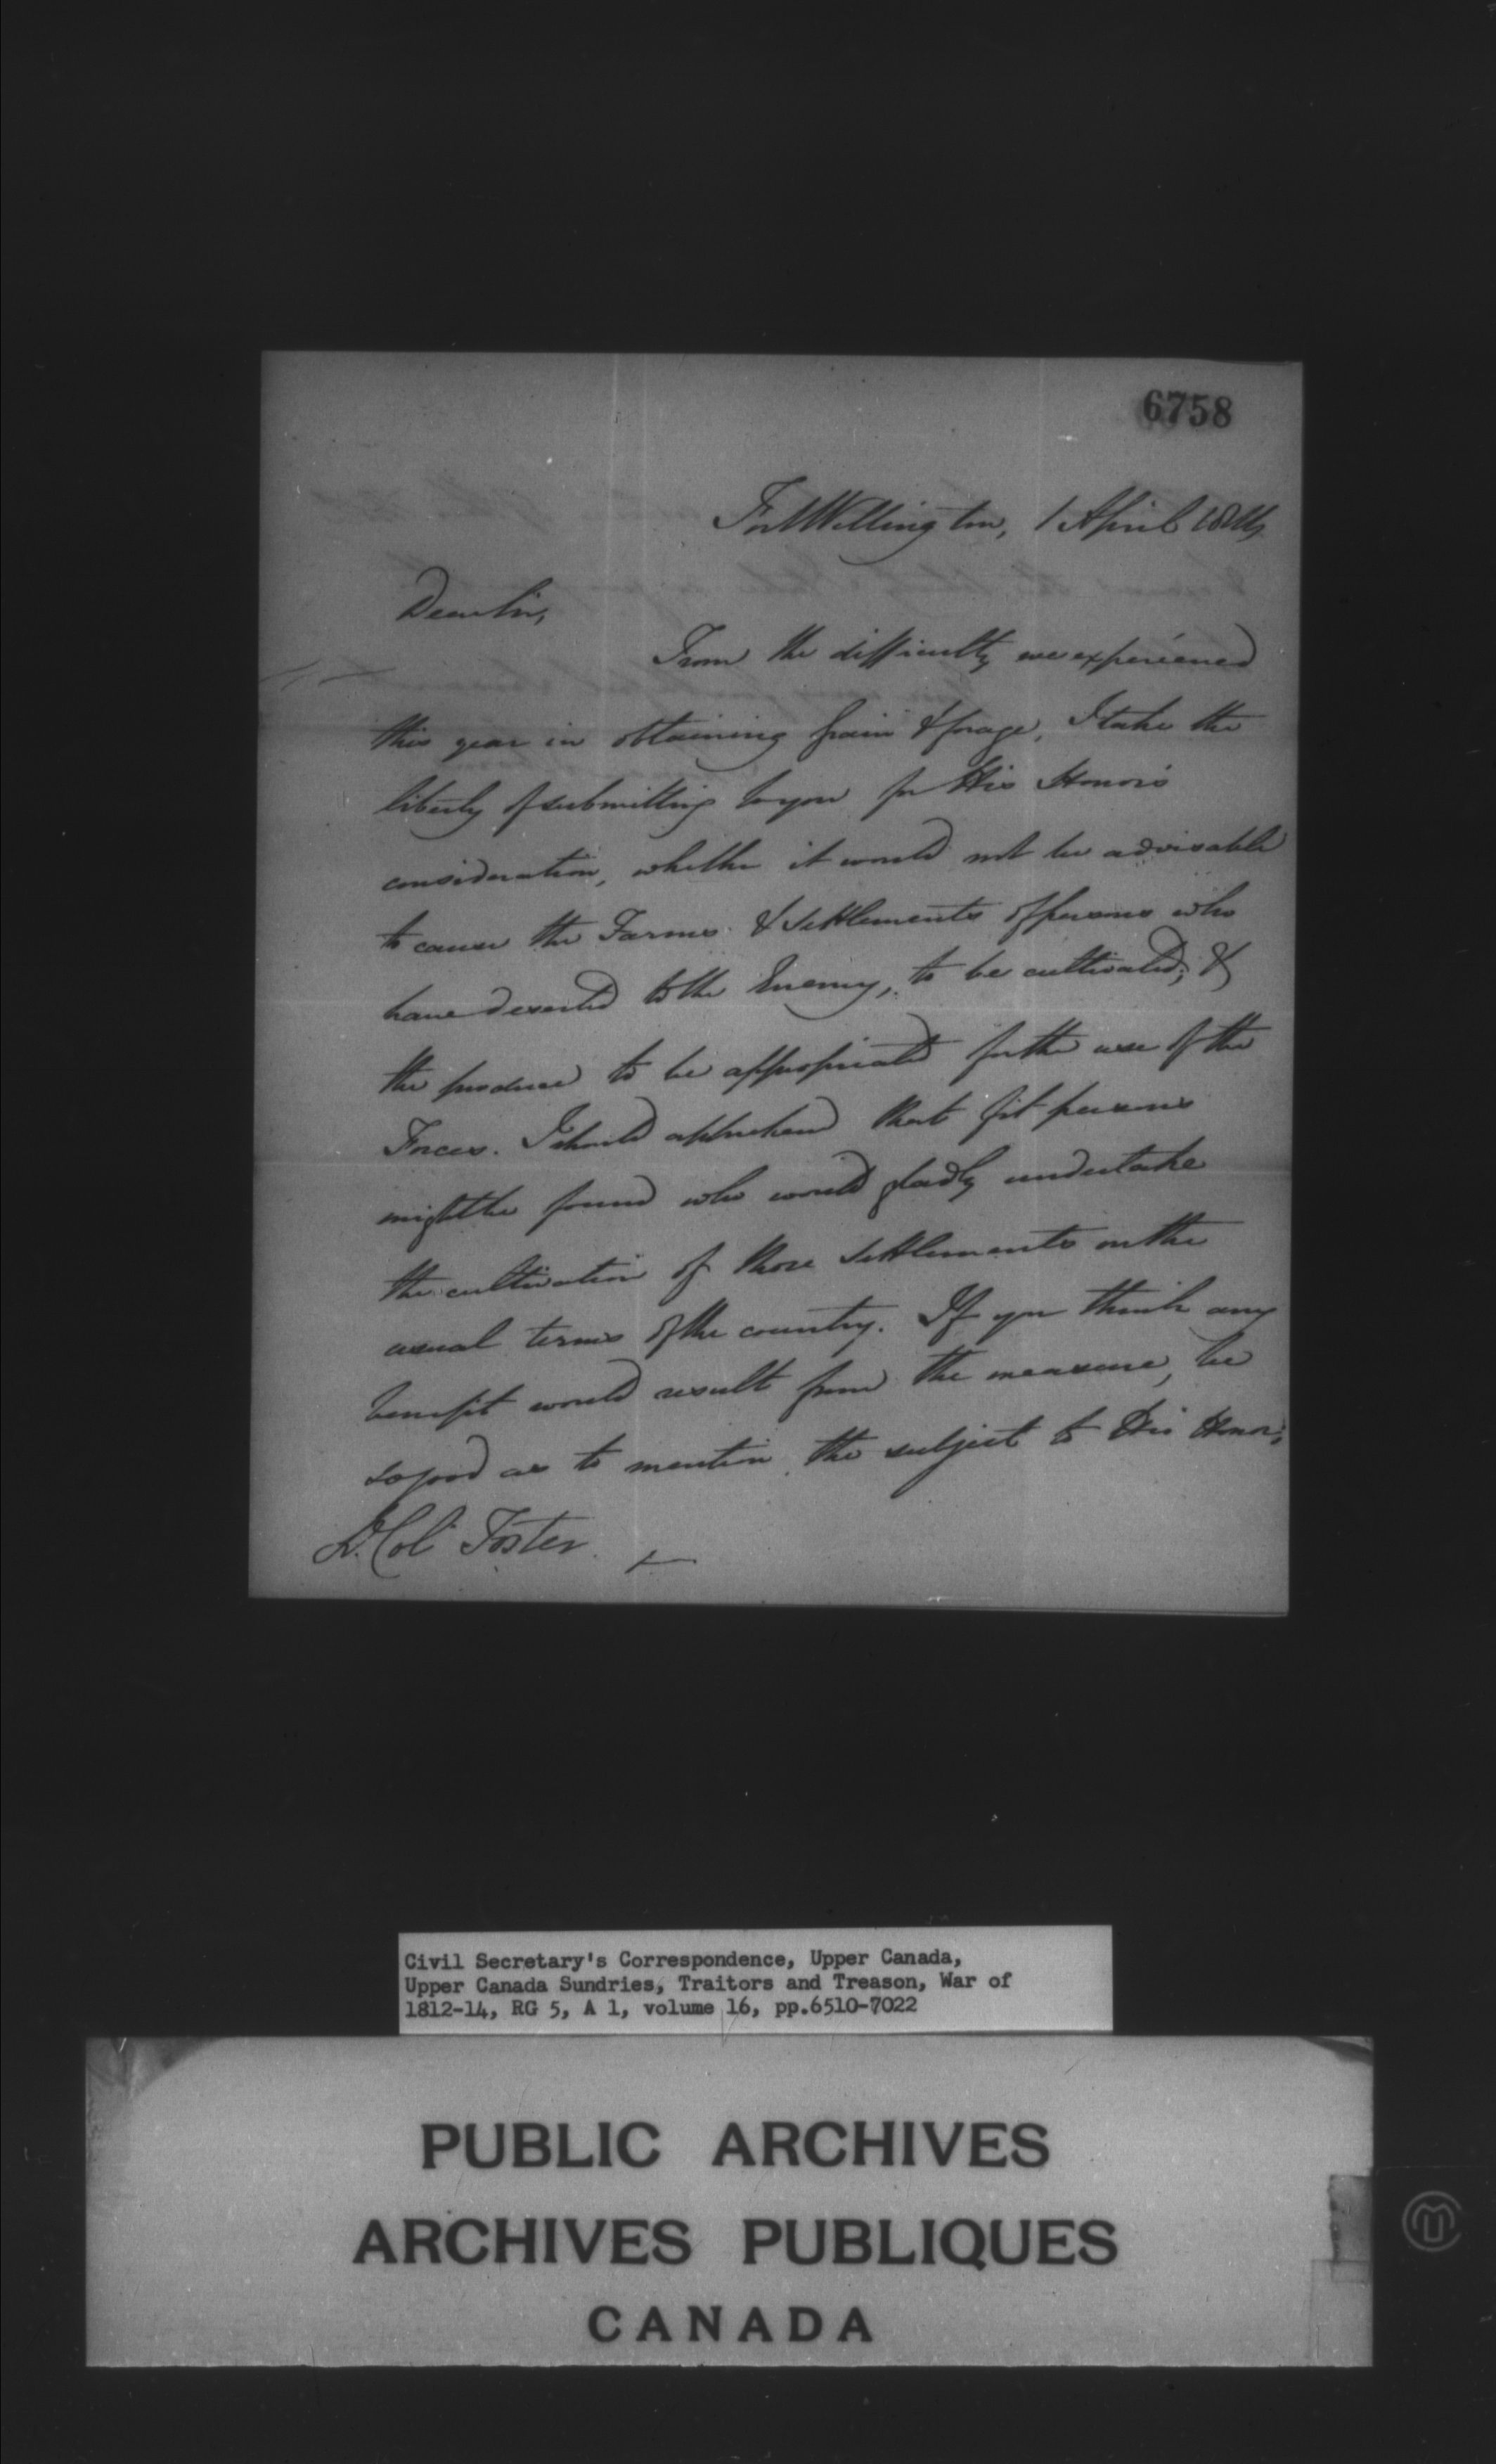 6758
Fort Wellington, 1 April 1814
Dear Sir,
From the difficulty we experienced
this year in obtaining grain & forage, I take the
liberty of submitting to you for His Honor's
consideration, whether it would not be advisable
to cause the Farms & Settlements of persons who
have deserted to the Enemy, to be cultivated; &
the produce to be appropriated for the use of the
Forces. I should apprehend that fit persons
might be found who would gladly undertake
the cultivation of those settlements on the
usual terms of the country. If you think any
benefit would result from the measure, be
so good as to mention the subject to His Honor,
Lt. Col Foster
Civil Secretary's Correspondence, Upper Canada,
Upper Canada Sundries, Traitors and Treason, War of
1812-14, RG 5, A 1, volume 16, pp.6510-7022
PUBLIC ARCHIVES
ARCHIVES PUBLIQUES
CANADA